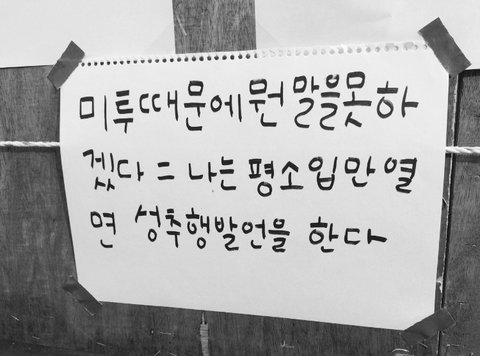 미투때문에 뭔 말을 못하
겠다 = 나는 평소 입만 열
면 성추행발언을 한다